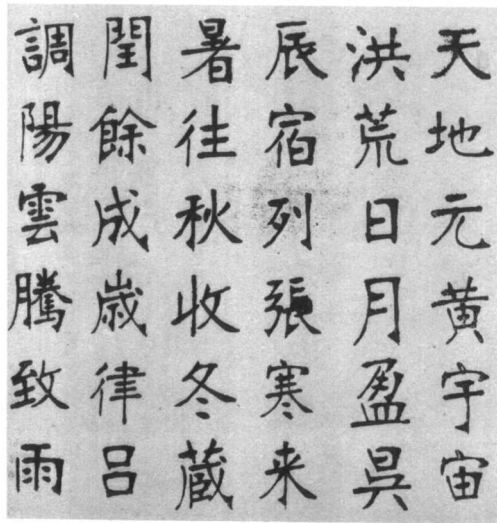 天地元黄宇宙
洪荒日月盈昃
辰宿列張寒来
暑往秋收冬蔵
閏餘成歳律呂
調陽雲騰致雨